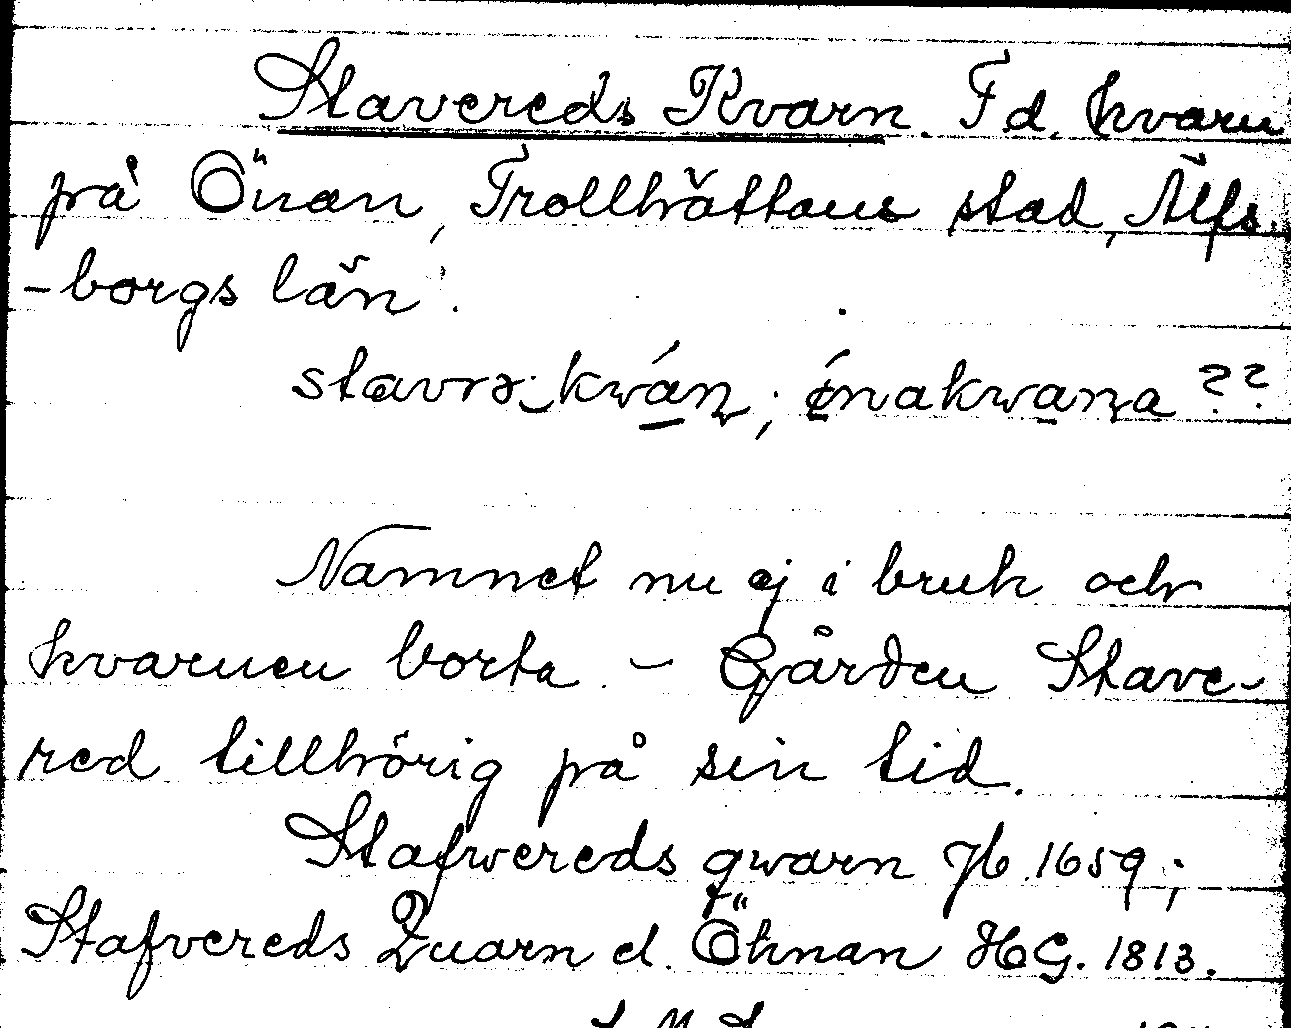 Stavereds Kvarn. F d. kvarn
på Önan, Trollhättans stad, Älfs-
-borgs län.
stavrə‿kwáṉ; ǿnakwaṉa ??
Namnet nu ej i bruk och
kvarnen borta. – Gården Stave-
red tillhörig på sin tid.
Stafwereds qwarn Jb 1659;
Stafvereds Quarn el. Öhnan HG. 1813.